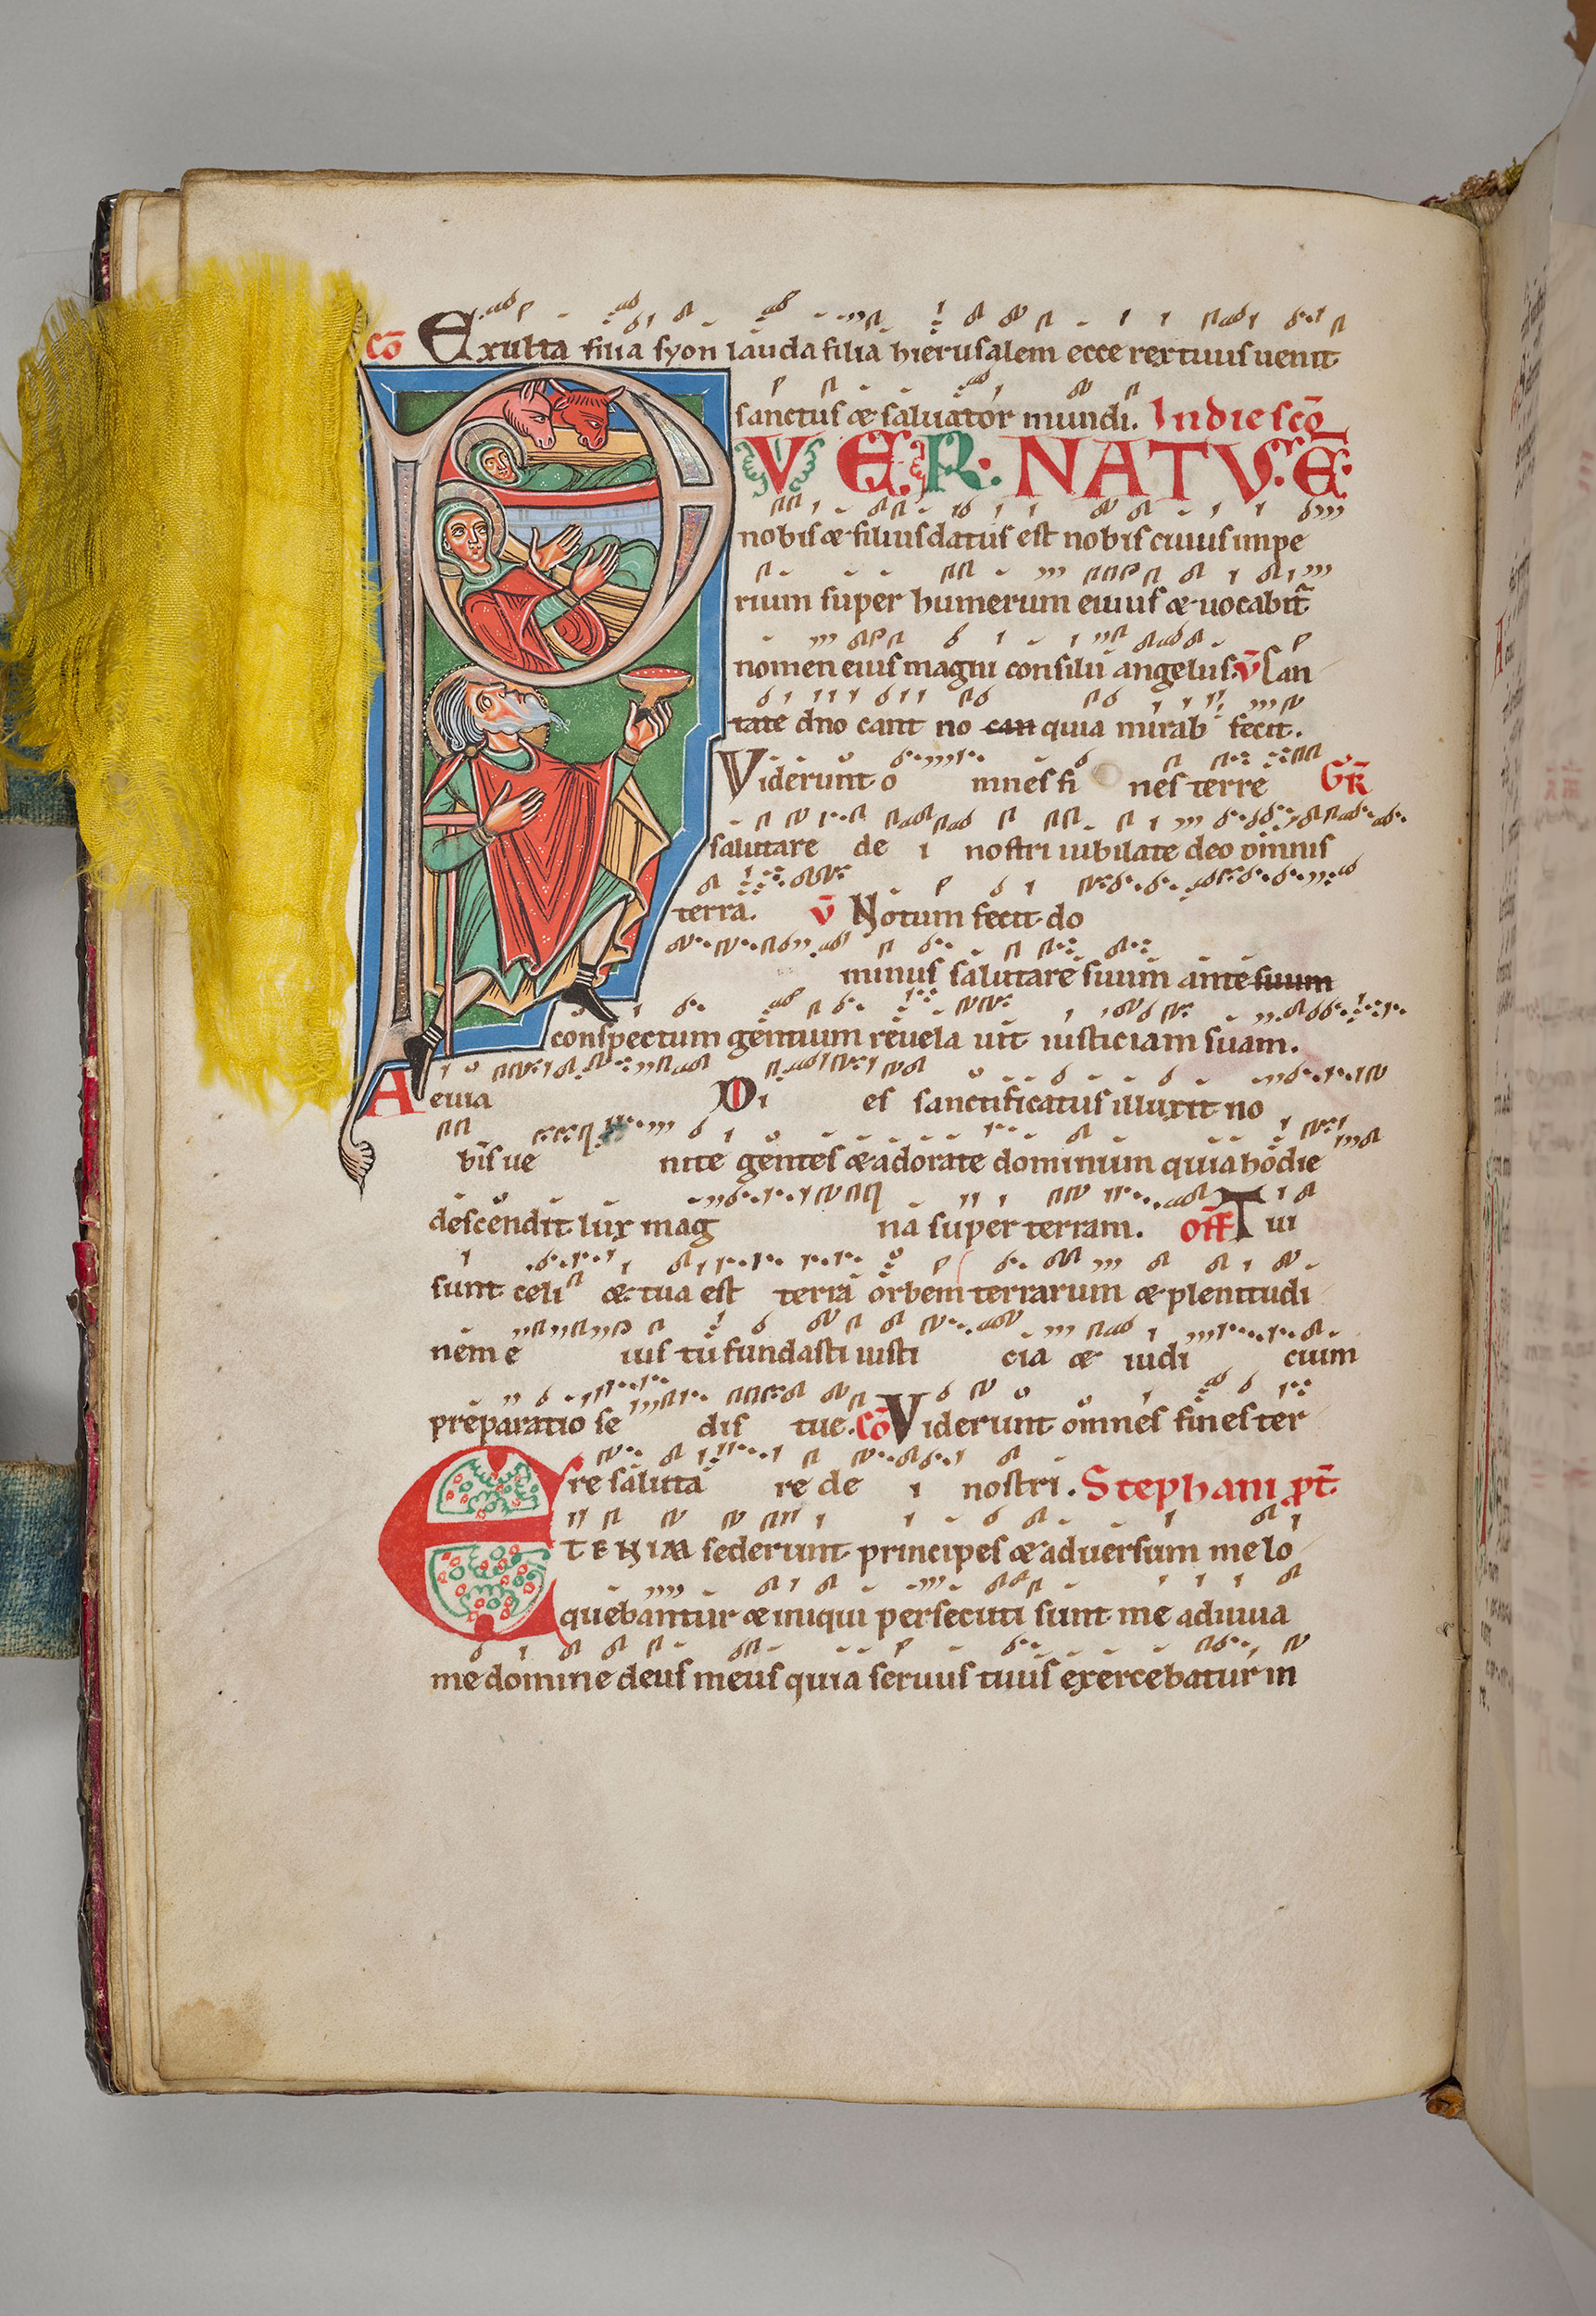 cō Exulta filia syon lauda filia hierusalem ecce rex tuus uenit
sanctus & saluator mundi. In die scō
PVER·NATVS·E·
nobis & filius datus est nobis cuius impe
rium super humerum eiuus & uocabit̄
nomen eius magni consilii angelus. v̄ Can
tate dno cant no can quia mirab fecit.
Viderunt o mnes fi nes terre GR̄
salutare de i nostri iubilate deo omnis
terra. v̄ Notum fecit do
minus salutare suum ante suum
conspectum gentium reuela uit iusticiam suam.
Aeuia Di es sanctificatus illuxit no
bis ue nite gentes & adorate dominum quia hodie
descendit lux mag na super terram. off Tui
sunt celi & tua est terra orbem terrarum & plenitudi
nem e ius tu fundasti iusti cia & iudi cium
preparatio se dis tue. cō Viderunt omnes fines ter
re saluta re de i nostri. Stephani p̄t
ETENIM sederunt principes & aduersum me lo
quebantur & iniqui persecuti sunt me adiuua
me domine deus meus quia seruus tuus exercebatur in